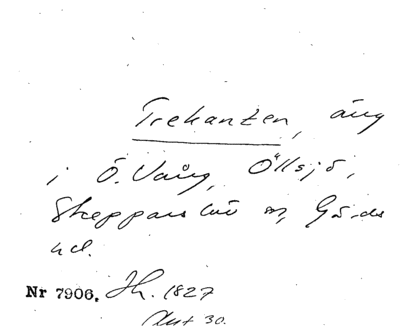 Trekanten, äng
i Ö. Vång, Öllsjö,
Skepparslöv sn, Gärds
hd.
Nr 7906. Jh. 1827
Akt 30.